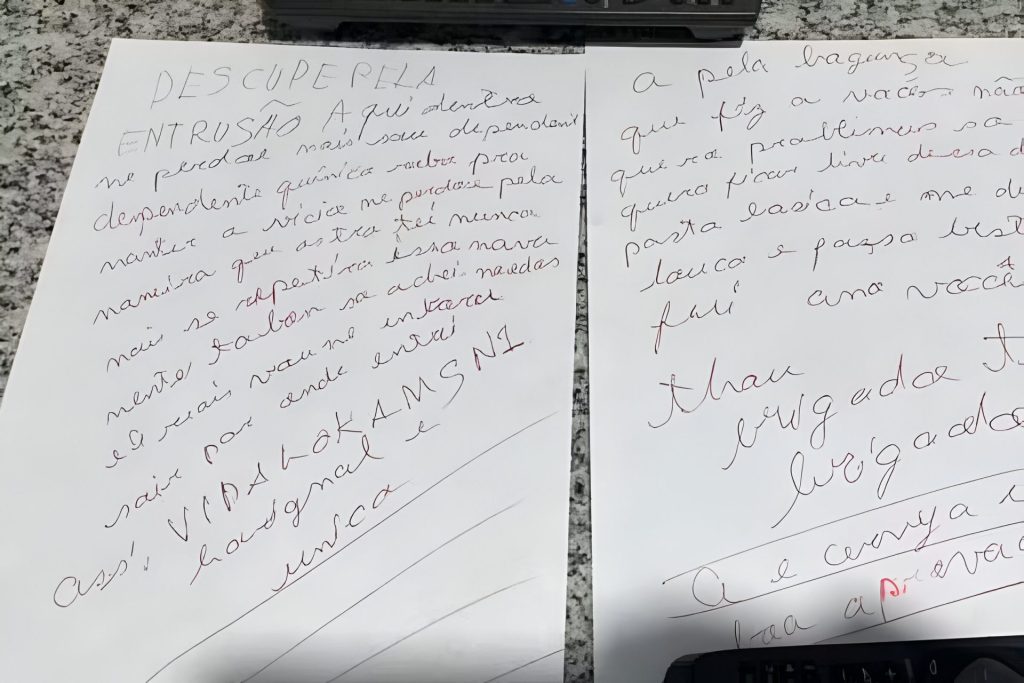 DESCUPE PELA
ENTRUSÃO Aqui dentra
me perdoe mais sou dependent
denpendente química roubo pra
manter a vício me perdoe pela
maneira que
mais se repetira essa nava
mente tabom so achei moedas
e
sair por onde entrai
ass: VIDA LOKA MSN1
horignal e
unica
a pela bagunza
que fiz a vocês não
quero problimas so
quero ficar livre dessa d
pasta basica e me d
louco e passo
fui amo você
thau
brigadoe T
brigado
a e cerveja
boa aprovac